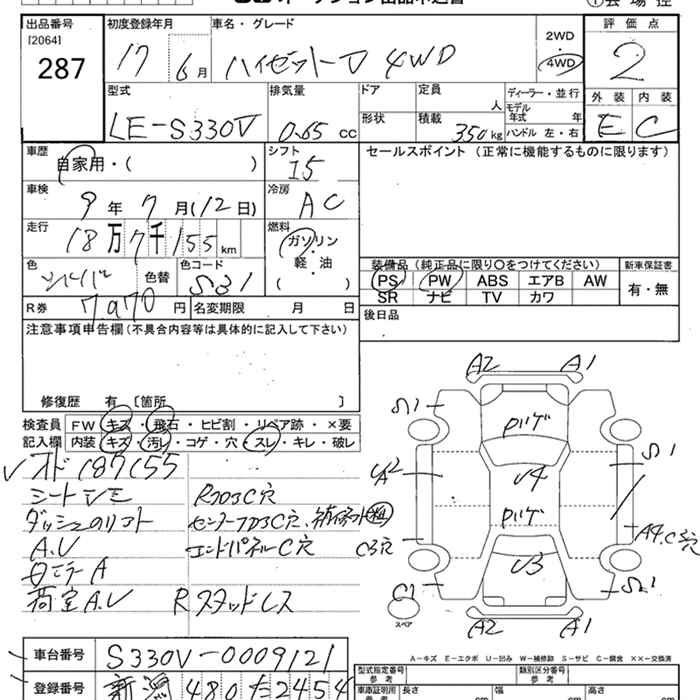 出品番号 初度登録年月 車名・グレード 評価点
[2064]
287 17 6月 ハイゼットトラ 4WD 2WD 4WD 2
型式 排気量 ドア 定員 ディーラー・並行 外装 内装
人 モデル年式 年
LE-S330V 0.65 cc 形状 積載 350kg ハンドル 左・右 E C
車歴 自家用・( ) シフト I5 セールスポイント (正常に機能するものに限ります)
車検 9年7月(12日) 冷房 AC
走行 18万7千155km 燃料 ガソリン 軽・油 ( )
色 シルバー 色替 色コード S31 装備品 (純正品に限り○をつけてください) 新車保証書
PS PW ABS エアB AW 有・無
SR ナビ TV カワ
R券 7,970円 名変期限 月 日 後日品
注意事項申告欄(不具合内容等は具体的に記入して下さい)
修復歴 有 〔箇所 〕
検査員 FW キズ・飛石・ヒビ割・リペア跡・×要
記入欄 内装 キズ・汚レ・コゲ・穴・スレ・キレ・破レ
187155
シート
R フロアC穴
A.U エンドパネルC穴
荷室A.U Rスタッドレス
A2 A1
S1 パイプ
A2 U4 S1
パイプ
C3穴 U3 A4.C3穴
C1 S1
スペア A2 A1
A-キズ E-エクボ U-凹み W-補修跡 S-サビ C-腐食 ××-交換済
車台番号 S330V-0009121 型式指定番号 参考 類別区分番号 参考
登録番号 新潟 480 た 2454 車庫証明用 長さ 幅 高さ